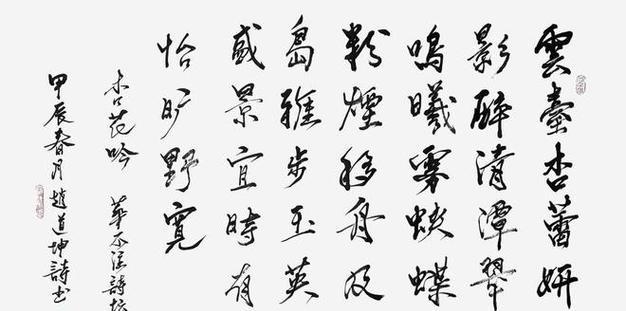 雲臺杏蕾妍
影醉清潭翠
鳴曦蛱蝶
粉煙移舟及
島雅步玉英
盛景宜時有
怡旷野寬
杏花吟 華不注詩坛
甲辰春月趙道坤詩书